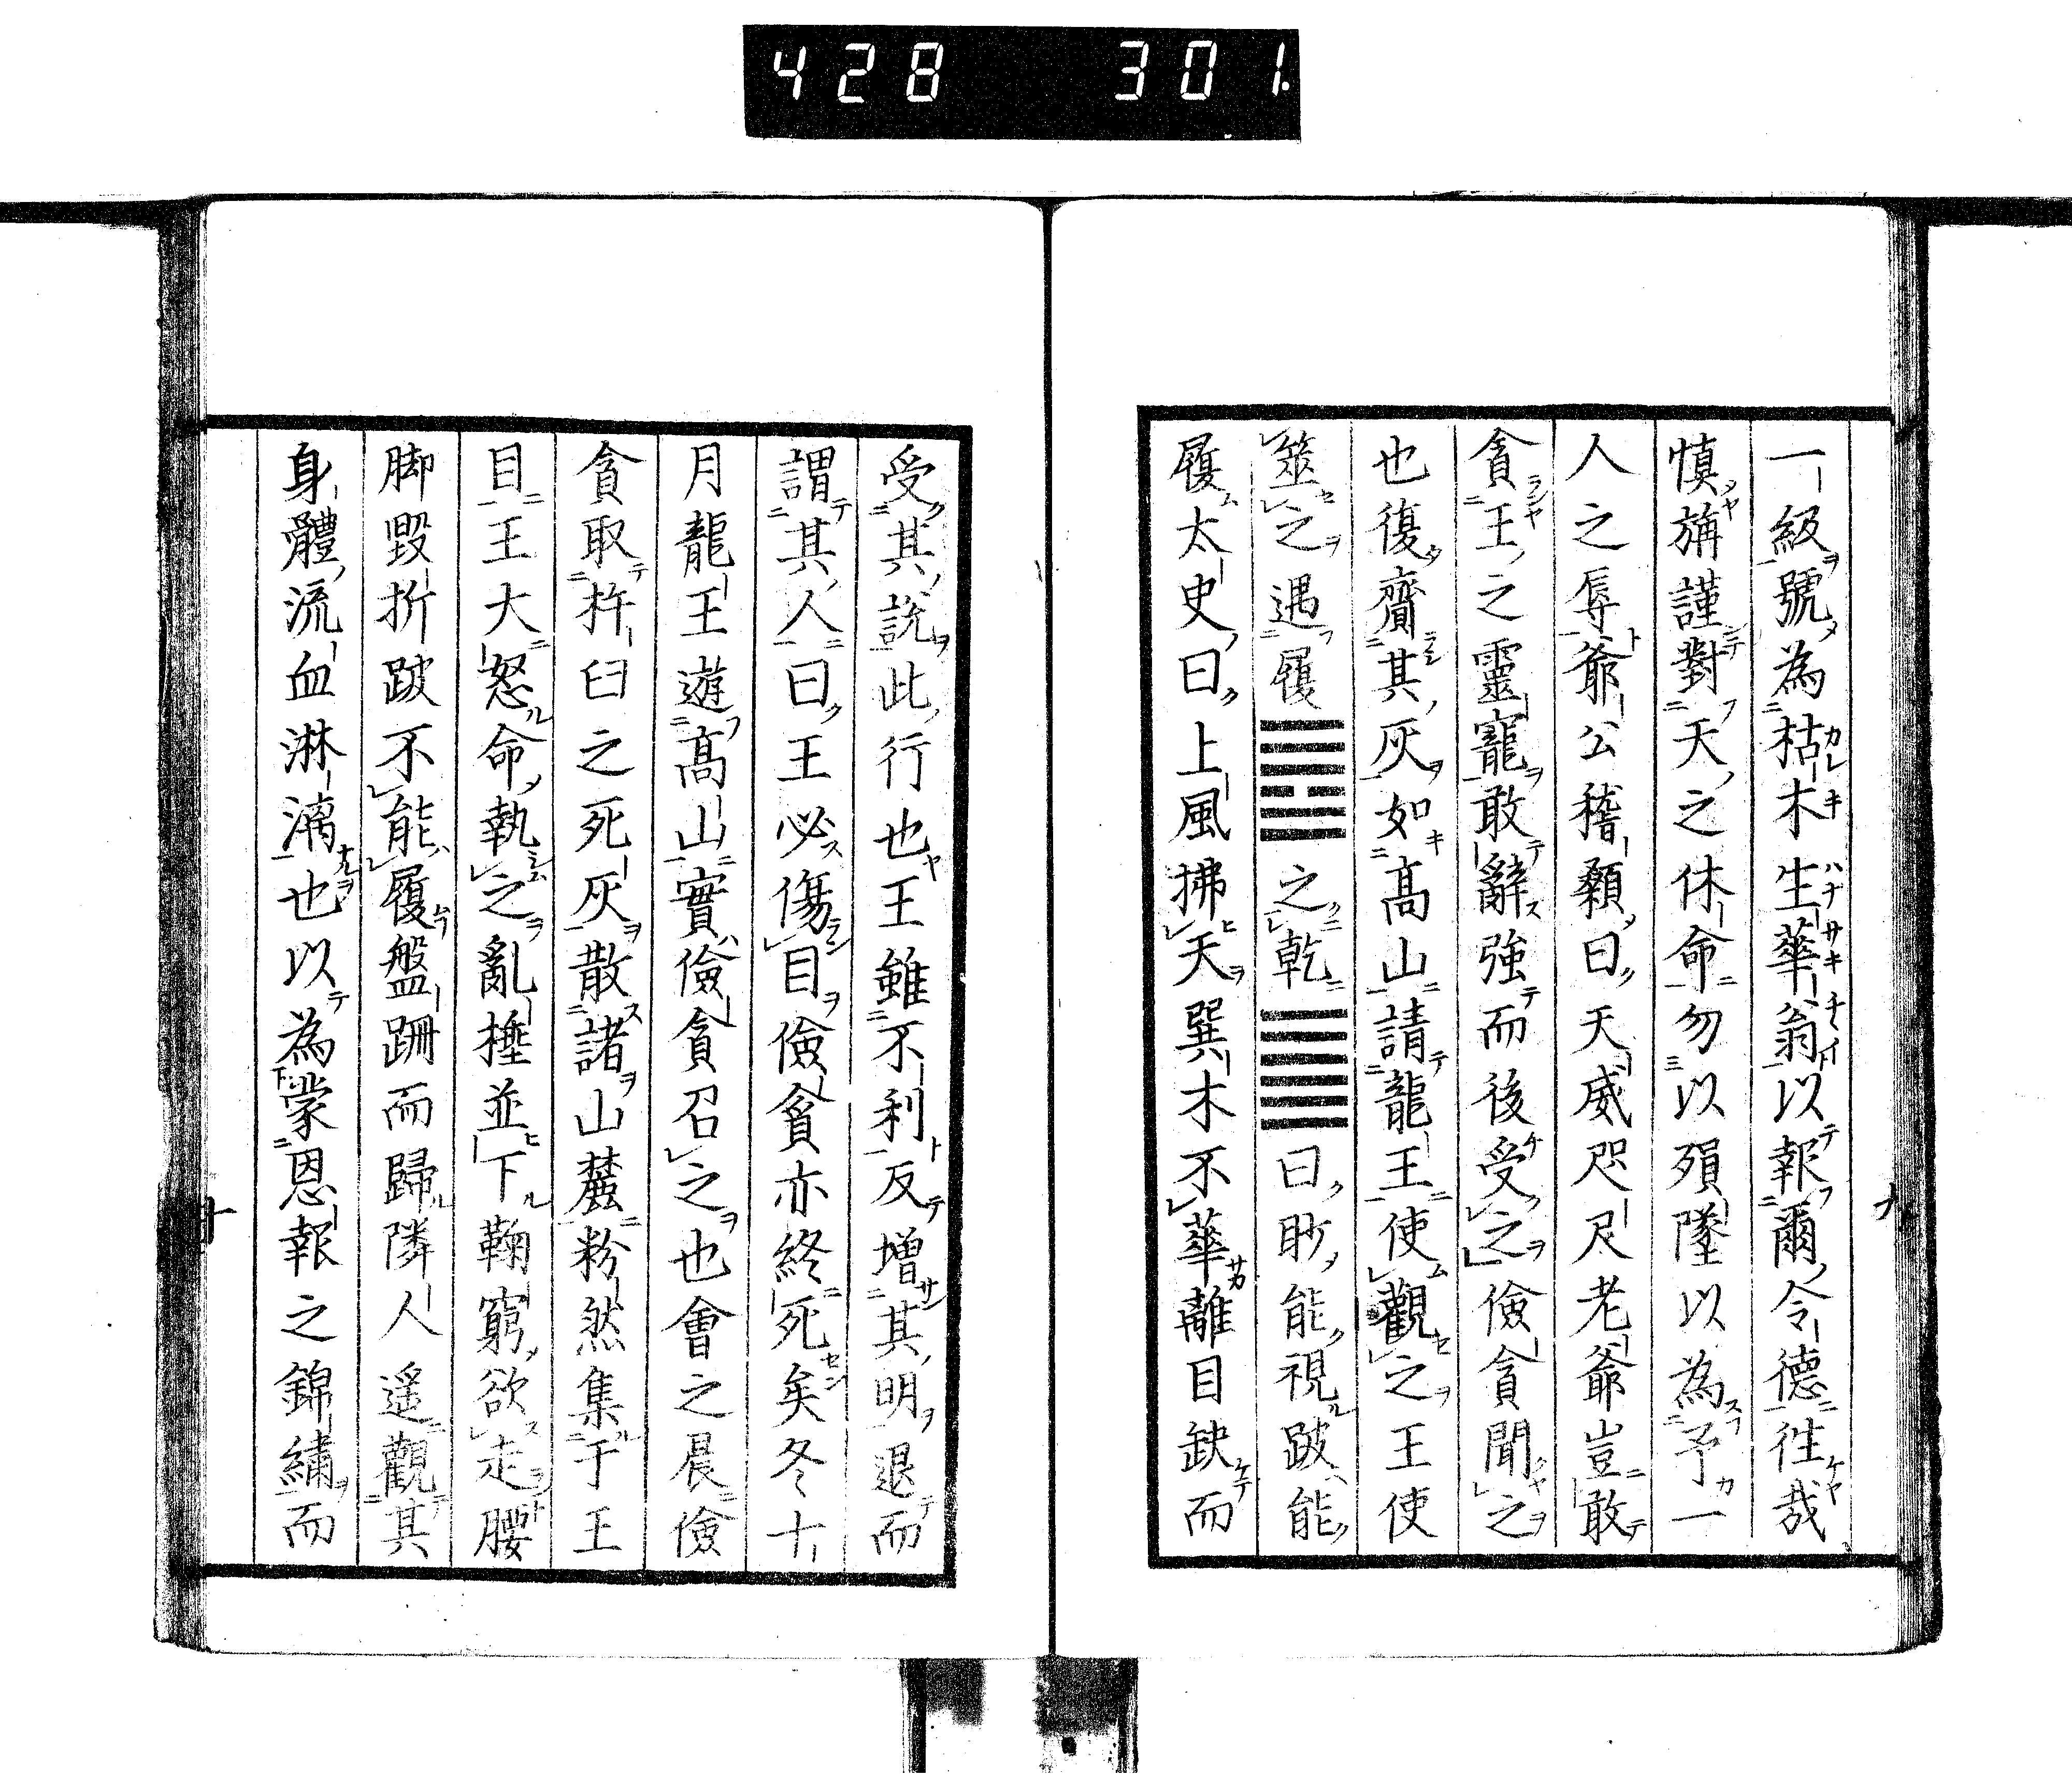 428 301.
一級號為枯木生華翁以報爾令德往哉
慎旃謹對天之休命勿以殞墜以為予一
人之辱爺公稽顙曰天威咫尺老爺豈敢
貪王之靈寵敢辭強而後受之儉貪聞之
也復齎其灰如高山請龍王使觀之王使
筮之遇履䷉之乾䷀曰眇能視跛能
履太史曰上風拂天巽木不華離目缺而
九
受其說此行也王雖不利反增其明退而
謂其人曰王必傷目儉貪亦終死矣冬十
月龍王遊高山實儉貪召之也會之晨儉
貪取杵臼之死灰散諸山麓粉然集于王
目王大怒命執之亂捶並下鞠窮欲走腰
脚毀折跛不能履盤跚而歸隣人遥觀其
身體流血淋漓也以為蒙恩報之錦繡而
十